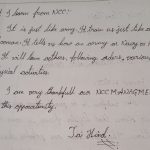 I learn from NCC:
It is just like army. It train us just like a
woman. It tells us how an army or Navy or
It will learn others, following orders, various
physical activities.
I am very thankfull our NCC MANAGMENT
this opportunity.
Jai Hind.